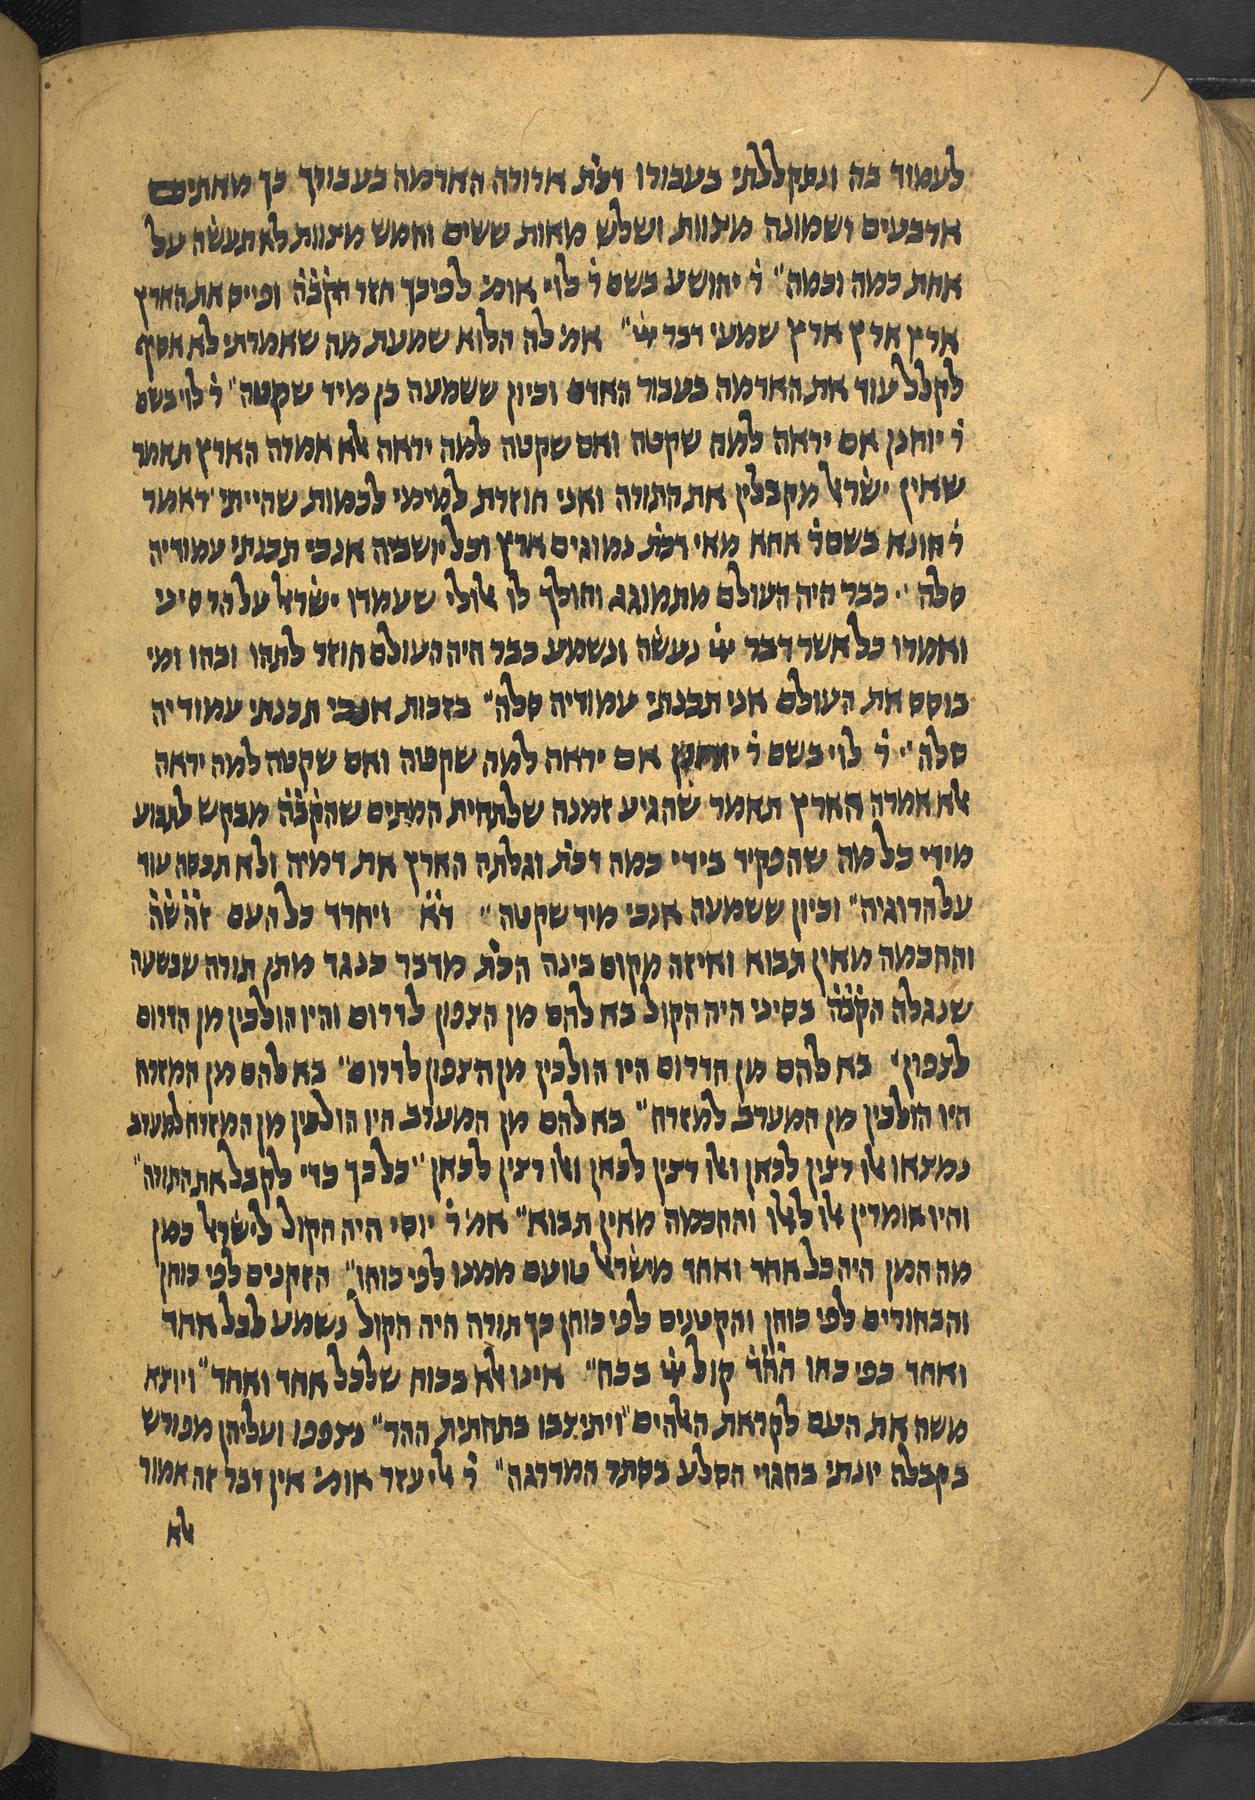 לעמוד בה ונתקללתי בעבורו דכת׳ ארורה האדמה בעבורך כך מאתים
ארבעים ושמונה מצוות ושלש מאות ששים וחמש מצוות לא תעשה על
אחת כמה וכמה״ ר׳ יהושע בשם ר׳ לוי אומ׳ לפיכך חזר הקב״ה ופייס את הארץ
ארץ ארץ ארץ שמעי דבר יי״ אמ׳ לה הלוא שמעת מה שאמרתי לא אסיף
לקלל עוד את האדמה בעבור האדם וכיון ששמעה כן מיד שקטה״ ר׳ לוי בשם
ר׳ יוחנן אם יראה למה שקטה ואם שקטה למה יראה אלא אמרה הארץ תאמר
שאין ישראל מקבלין את התורה ואני חוזרת למימי לכמות שהייתי דאמר
ר׳ חונא בשם ר׳ אחא מאי דכת׳ נמוגים ארץ וכל יושביה אנכי תכנתי עמודיה
סלה ׳׳ כבר היה העולם מתמוגג והולך לו אלולי שעמדו ישראל על הר סיני
ואמרו כל אשר דבר יי נעשה ונשמע כבר היה העולם חוזר לתהו ובהו ומי
בוסס את העולם אני תכנתי עמודיה סלה״ בזכות אנכי תכנתי עמודיה
סלה״ ר׳ לוי בשם ר׳ יוחנן אם יראה למה שקטה ואם שקטה למה יראה
אלא אמרה הארץ תאמר שהגיע זמנה שלתחית המתים שהקב״ה מבקש לתבוע
מידי כל מה שהפקיד בידי כמה דכת׳ וגלתה הארץ את דמיה ולא תכסה עוד
על הרוגיה״ וכיון ששמעה אנכי מיד שקטה״ ד״א ויחרד כל העם זה״ש״ה
והחכמה מאין תבוא ואיזה מקום בינה הכת׳ מדבר כנגד מתן תורה שבשעה
שנגלה הקב״ה בסיני היה הקול בא להם מן הצפון לדרום והיו הולכין מן הדרום
לצפון׳ בא להם מן הדרום היו הולכין מן הצפון לדרום״ בא להם מן המזרח
היו הולכין מן המערב למזרח״ בא להם מן המערב היו הולכין מן המזרח למערב
נמצאו אלו רצין לכאן ואלו רצין לכאן ואלו רצין לכאן״ כל כך כדי לקבל את התורה״
והיו אומרין אלו לאלו והחכמה מאין תבוא״ אמ׳ ר׳ יוסי היה הקול לישראל כמן
מה המן היה כל אחד ואחד מישראל טועם ממנו לפי כוחו״ הזקנים לפי כוחן
והבחורים לפי כוחן והקטנים לפי כוחן כך תורה היה הקול נשמע לכל אחד
ואחד כפי כחו הה״ד קול יי בכח״ אינו אלא בכוח שלכל אחד ואחד״ ויוצא
משה את העם לקראת האלהים״ ויתיצבו בתחתית ההר״ נצפפו ועליהן מפורש
בקבלה יונתי בחגוי הסלע בסתר המדרגה״ ר׳ אליעזר אומ׳ אין דבר זה אמור
אלא